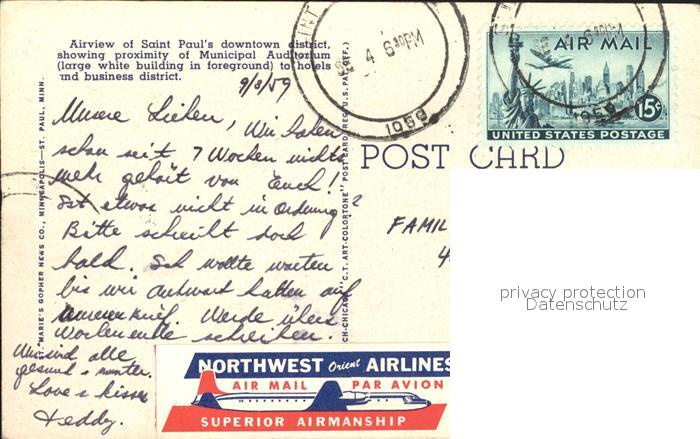 Airview of Saint Paul's downtown district,
showing proximity of Municipal Auditorium
(large white building in foreground) to hotels
and business district.
9/3/59
Unsere Lieben, Wir haben
schon seit 7 Wochen nichts
mehr gehört von Euch!
Ist etwas nicht in Ordnung?
Bitte schreibt doch
bald. Ich wollte warten
bis wir Antwort hatten auf
unseren Brief. Werde übers
Wochenende schreiben.
Wir sind alle
gesund & munter.
Love & kisses
Teddy.
MARIE'S GOPHER NEWS CO., MINNEAPOLIS—ST. PAUL, MINN.
CH-CHICAGO "C.T. ART-COLORTONE" POST CARD (REG. U. S. PAT. OFF.)
POST CARD
4 630PM
1959
AIR MAIL
15¢
UNITED STATES POSTAGE
1959
FAMIL
4
privacy protection
Datenschutz
NORTHWEST Orient AIRLINES
AIR MAIL PAR AVION
SUPERIOR AIRMANSHIP